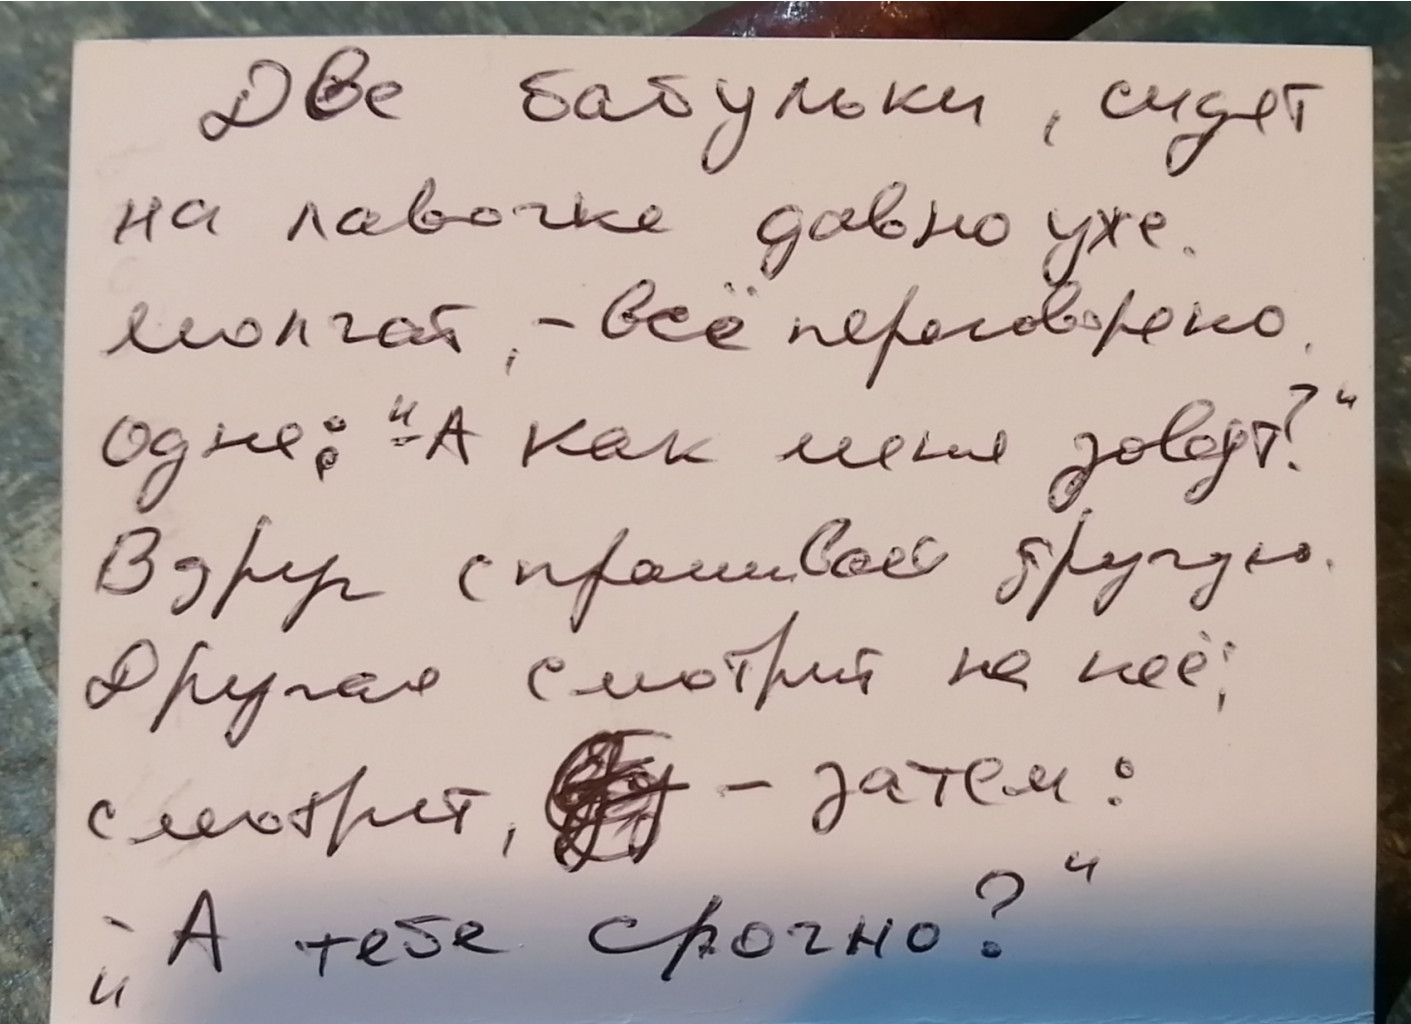 Две бабульки, сидят
на лавочке давно уже.
молчат, - всё переговорено.
одна: "-А как меня зовут?"
Вдруг спрашивает другую.
Другая смотрит на неё,
смотрит, - затем:
"-А тебе срочно?"